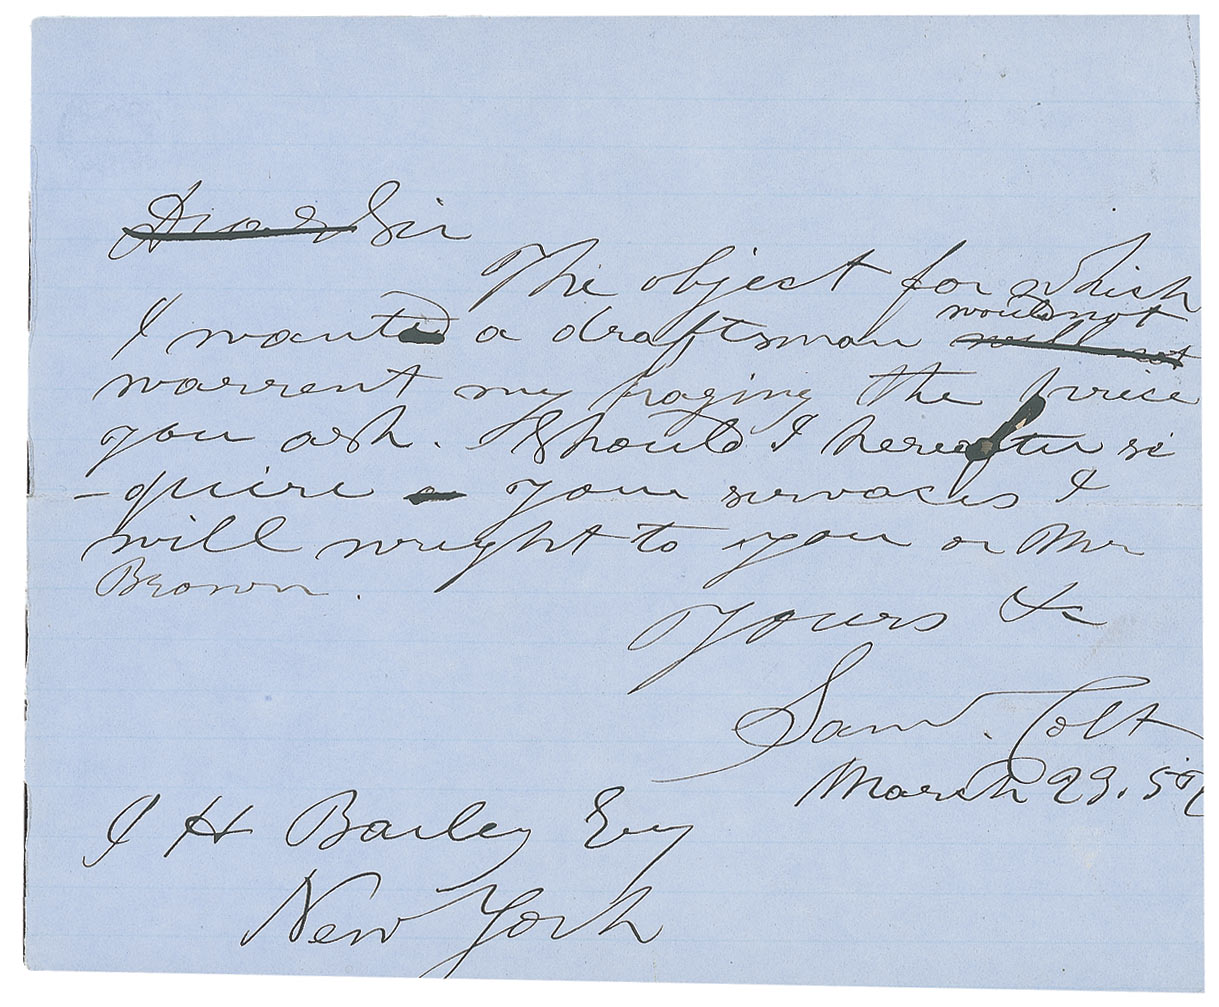 Dear Sir
The object for which
would not
I want a draftsman will not
warrent my paying the price
you ask. Should I hereafter re
-quire your servaces I
will wright to you or Mr
Brown.
Yours &c
Saml. Colt
March 23. 5
J H Barley Esq
New York